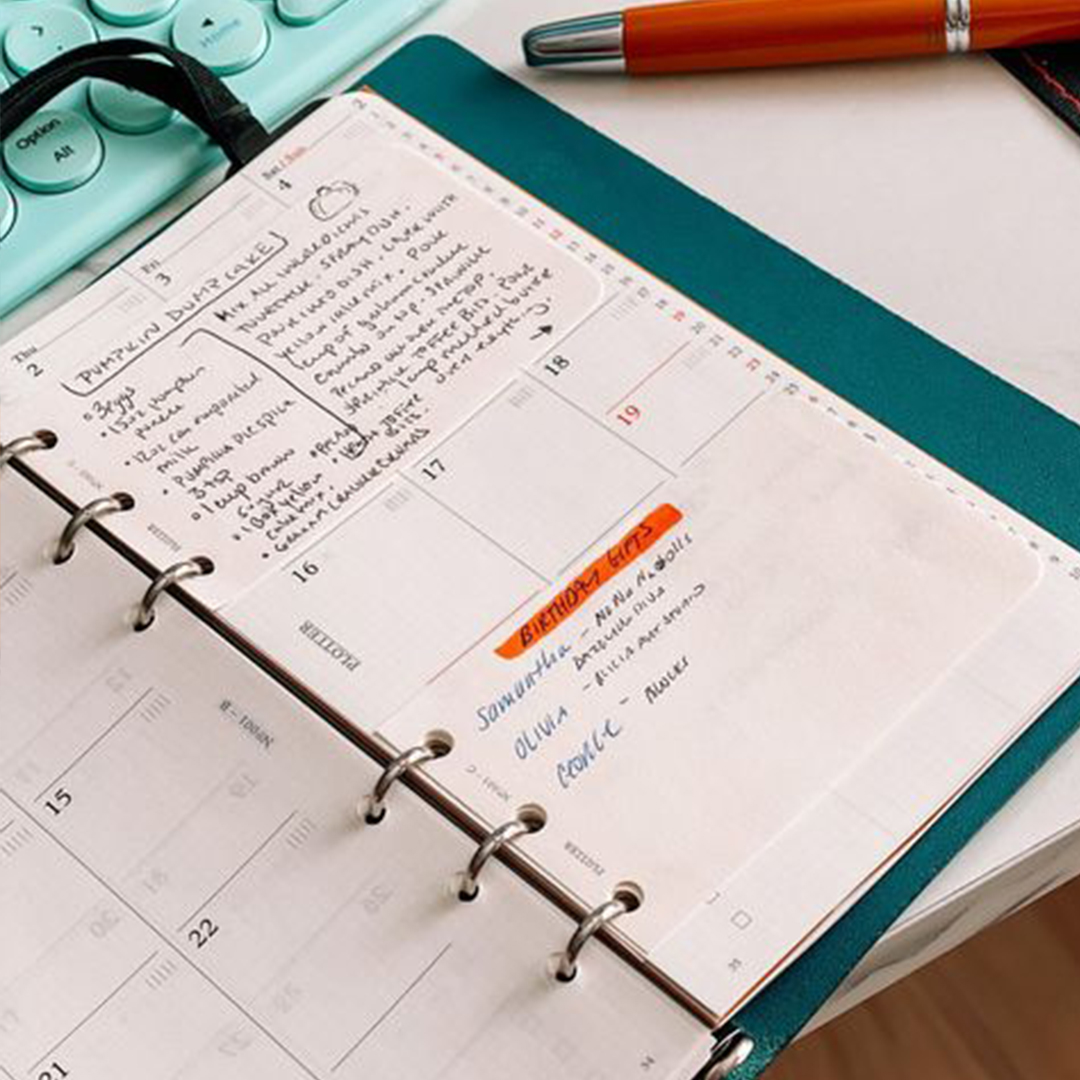 Home
Option
Alt
Sat / Sun
4
Fri
3
Thu
2
PUMPKIN DUMP CAKE
• 3 eggs
• 15oz pumpkin
puree
• 12oz can evaporated
milk
• PUMPKIN PIE SPICE
3 tsp
• 1 cup brown
sugar
• 1 Box yellow
cake mix
• GRAHAM CRACKER CRUMBS
• PECANS
• HEATH TOFFEE
BITS
MIX ALL INGREDIENTS
TOGETHER. SPRAY DISH.
POUR INTO DISH. COVER WITH
yellow cake mix. POUR
1 cup of graham cracker
crumbs on top. SPRINKLE
PECANS OVER ONE TOP.
SPRINKLE TOFFEE BITS. POUR
1 cup melted butter
over everything.
→
PLOTTER
18
19
17
16
PLOTTER
BIRTHDAY GIFTS
Samantha - NONA
DAZZLING DIVA
OLIVIA -
GEORGE - BLOCKS
PLOTTER
35
15
22
21
34